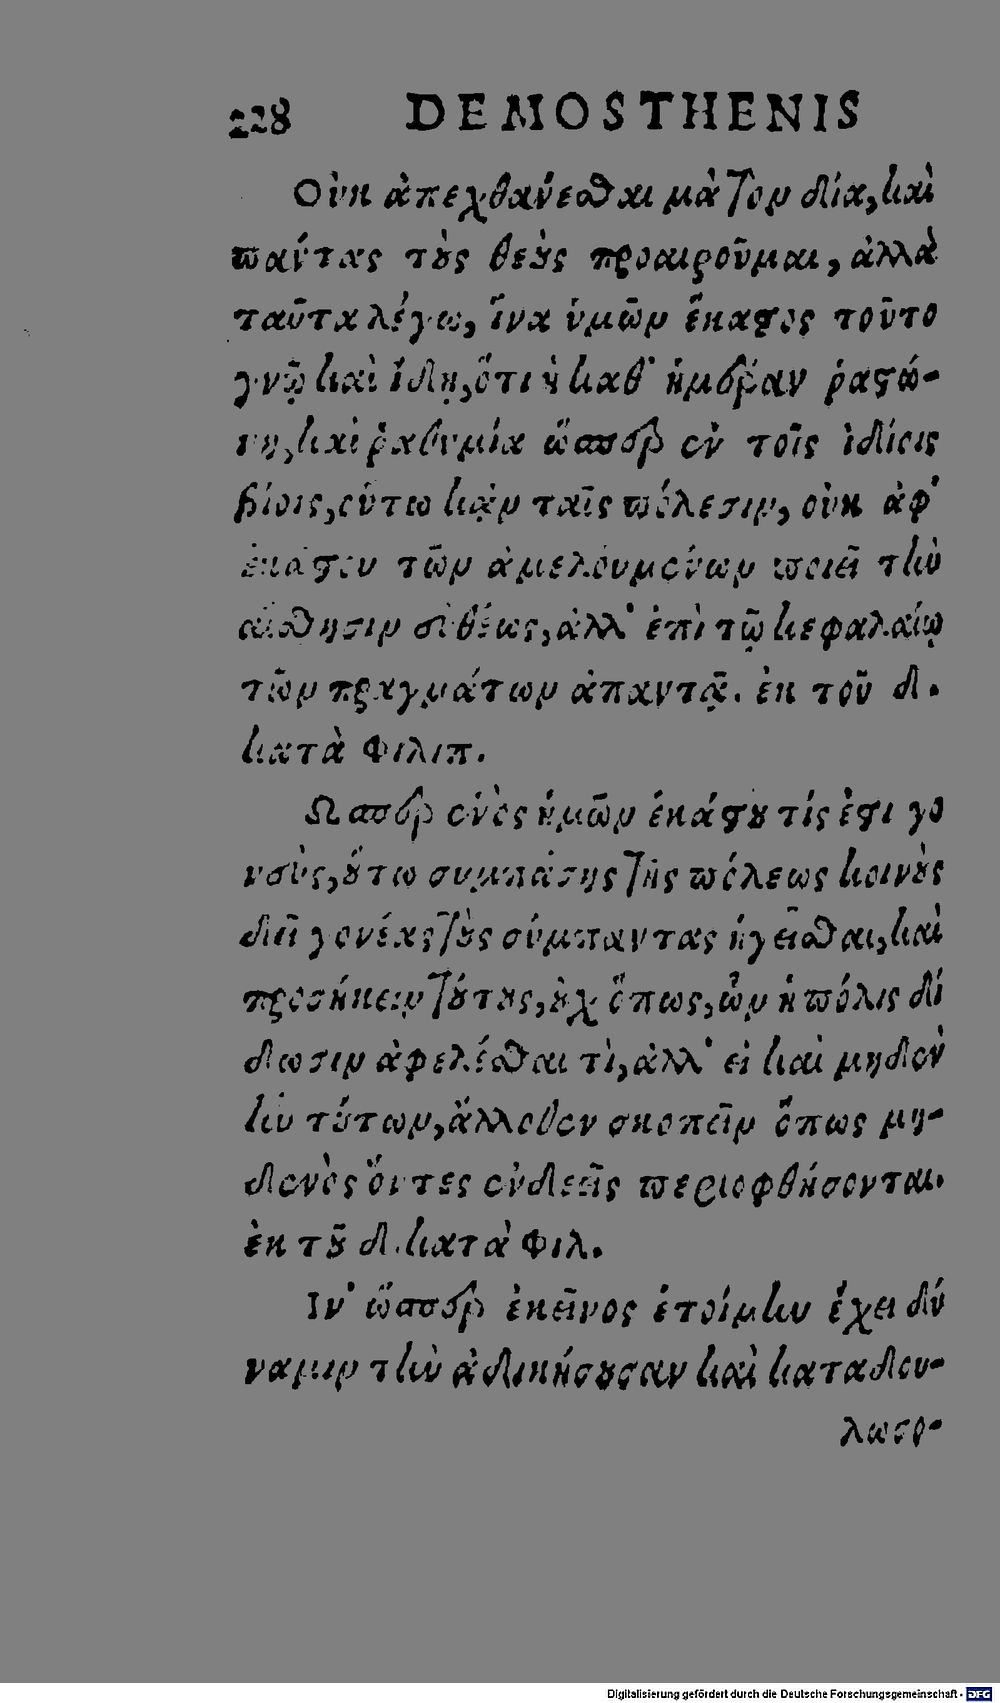 228 DEMOSTHENIS
Οὐκ ἀπεχθάνεσθαι μὰ τὸν δία, καὶ
πάντας τοὺς θεοὺς προαιροῦμαι, ἀλλὰ
ταῦτα λέγω, ἵνα ὑμῶν ἕκαστος τοῦτο
γνῷ καὶ ἴδῃ, ὅτι ἡ καθ' ἡμέραν ῥαστώ-
νη, καὶ ῥαθυμία ὥσπερ ἐν τοῖς ἰδίοις
βίοις, οὕτω κᾀν ταῖς πόλεσιν, οὐκ ἀφ'
ἑκάστου τῶν ἀμελουμένων ποιεῖ τὴν
αἴσθησιν εὐθέως, ἀλλ' ἐπὶ τῷ κεφαλαίῳ
τῶν πραγμάτων ἀπαντᾷ. ἐκ τοῦ δ.
κατὰ Φιλιπ.
Ωσπερ ἑνὸς ἡμῶν ἑκάστου τίς ἐστι γο
νεὺς, οὕτω συμπάσης τῆς πόλεως κοινοὺς
δεῖ γονέας τοὺς σύμπαντας ἡγεῖσθαι, καὶ
προσήκειν τούτους, οὐχ ὅπως, ὧν ἡ πόλις δί
δωσιν ἀφελέσθαι τὶ, ἀλλ' εἰ καὶ μηδὲν
ἦν τούτων, ἄλλοθεν σκοπεῖν ὅπως μη-
δενὸς ὄντες ἐνδεεῖς περιοφθήσονται.
ἐκ τοῦ δ. κατὰ Φιλ.
Ιν' ὥσπερ ἐκεῖνος ἑτοίμην ἔχει δύ
ναμιν τὴν ἀδικήσουσαν καὶ καταδου-
λωσο-
Digitalisierung gefördert durch die Deutsche Forschungsgemeinschaft - DFG